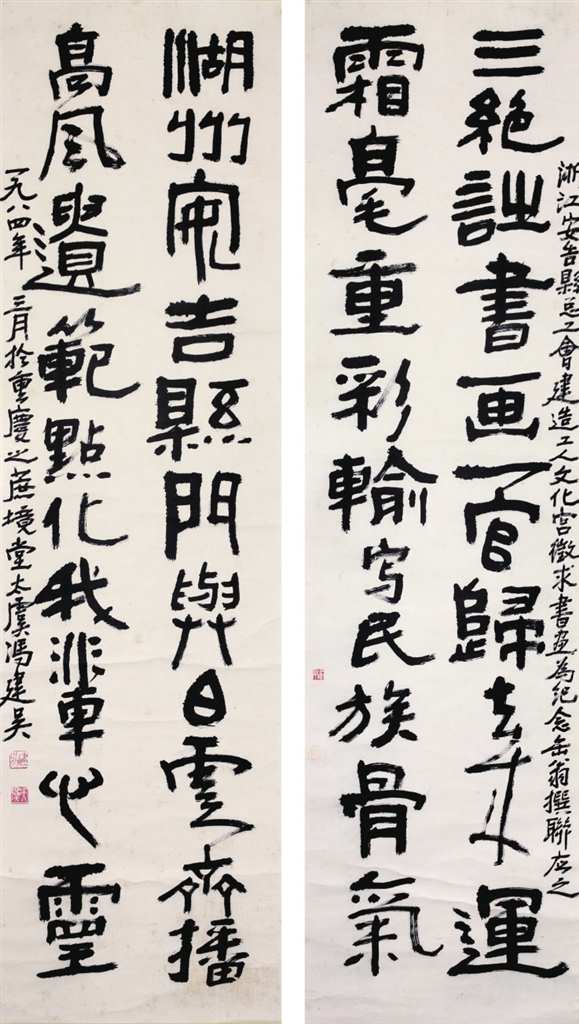 浙江安吉縣总工會建造工人文化宮徵求書畫為紀念缶翁撰聯应之
三絕詩書画一官歸去来運
霜毫重彩輸写民族骨氣
湖州安吉縣門與白雲齊播
高風遺範點化我輩心靈
一九八四年三月於重慶之蔗境堂太虞馮建吴